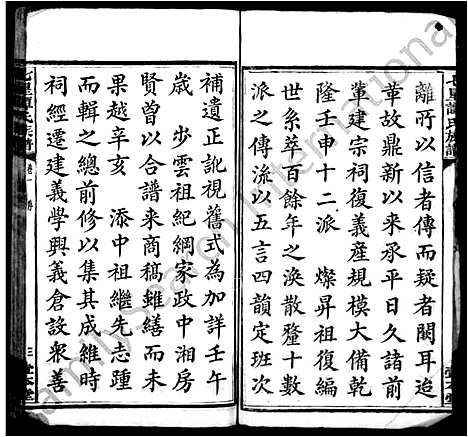 離所以信者傳而疑者闕耳迨
華故鼎新以來承平日久諸前
軰建宗祠復義產規模大備乾
隆壬申十二派　燦昇祖復編
世系萃百餘年之渙散釐十數
派之傳流以五言四韻定班次
七里譚氏族譜
補遺正訛視舊式為加詳壬午
歲　步雲祖紀綱家政中湘房
賢曾以合譜來商稿雖繕而未
果越辛亥　添中祖繼先志踵
而輯之總前修以集其成維時
祠經遷建義學興義倉設衆善
卷一
三
FamilySearch International